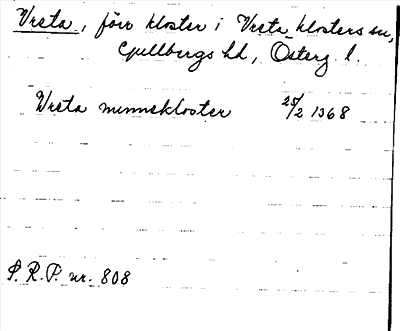 Vreta, förr kloster i Vreta klosters sn,
Gullbergs hd, Österg. l.
Vreta nunnekloster 25/2 1368
S. R. P. nr. 808